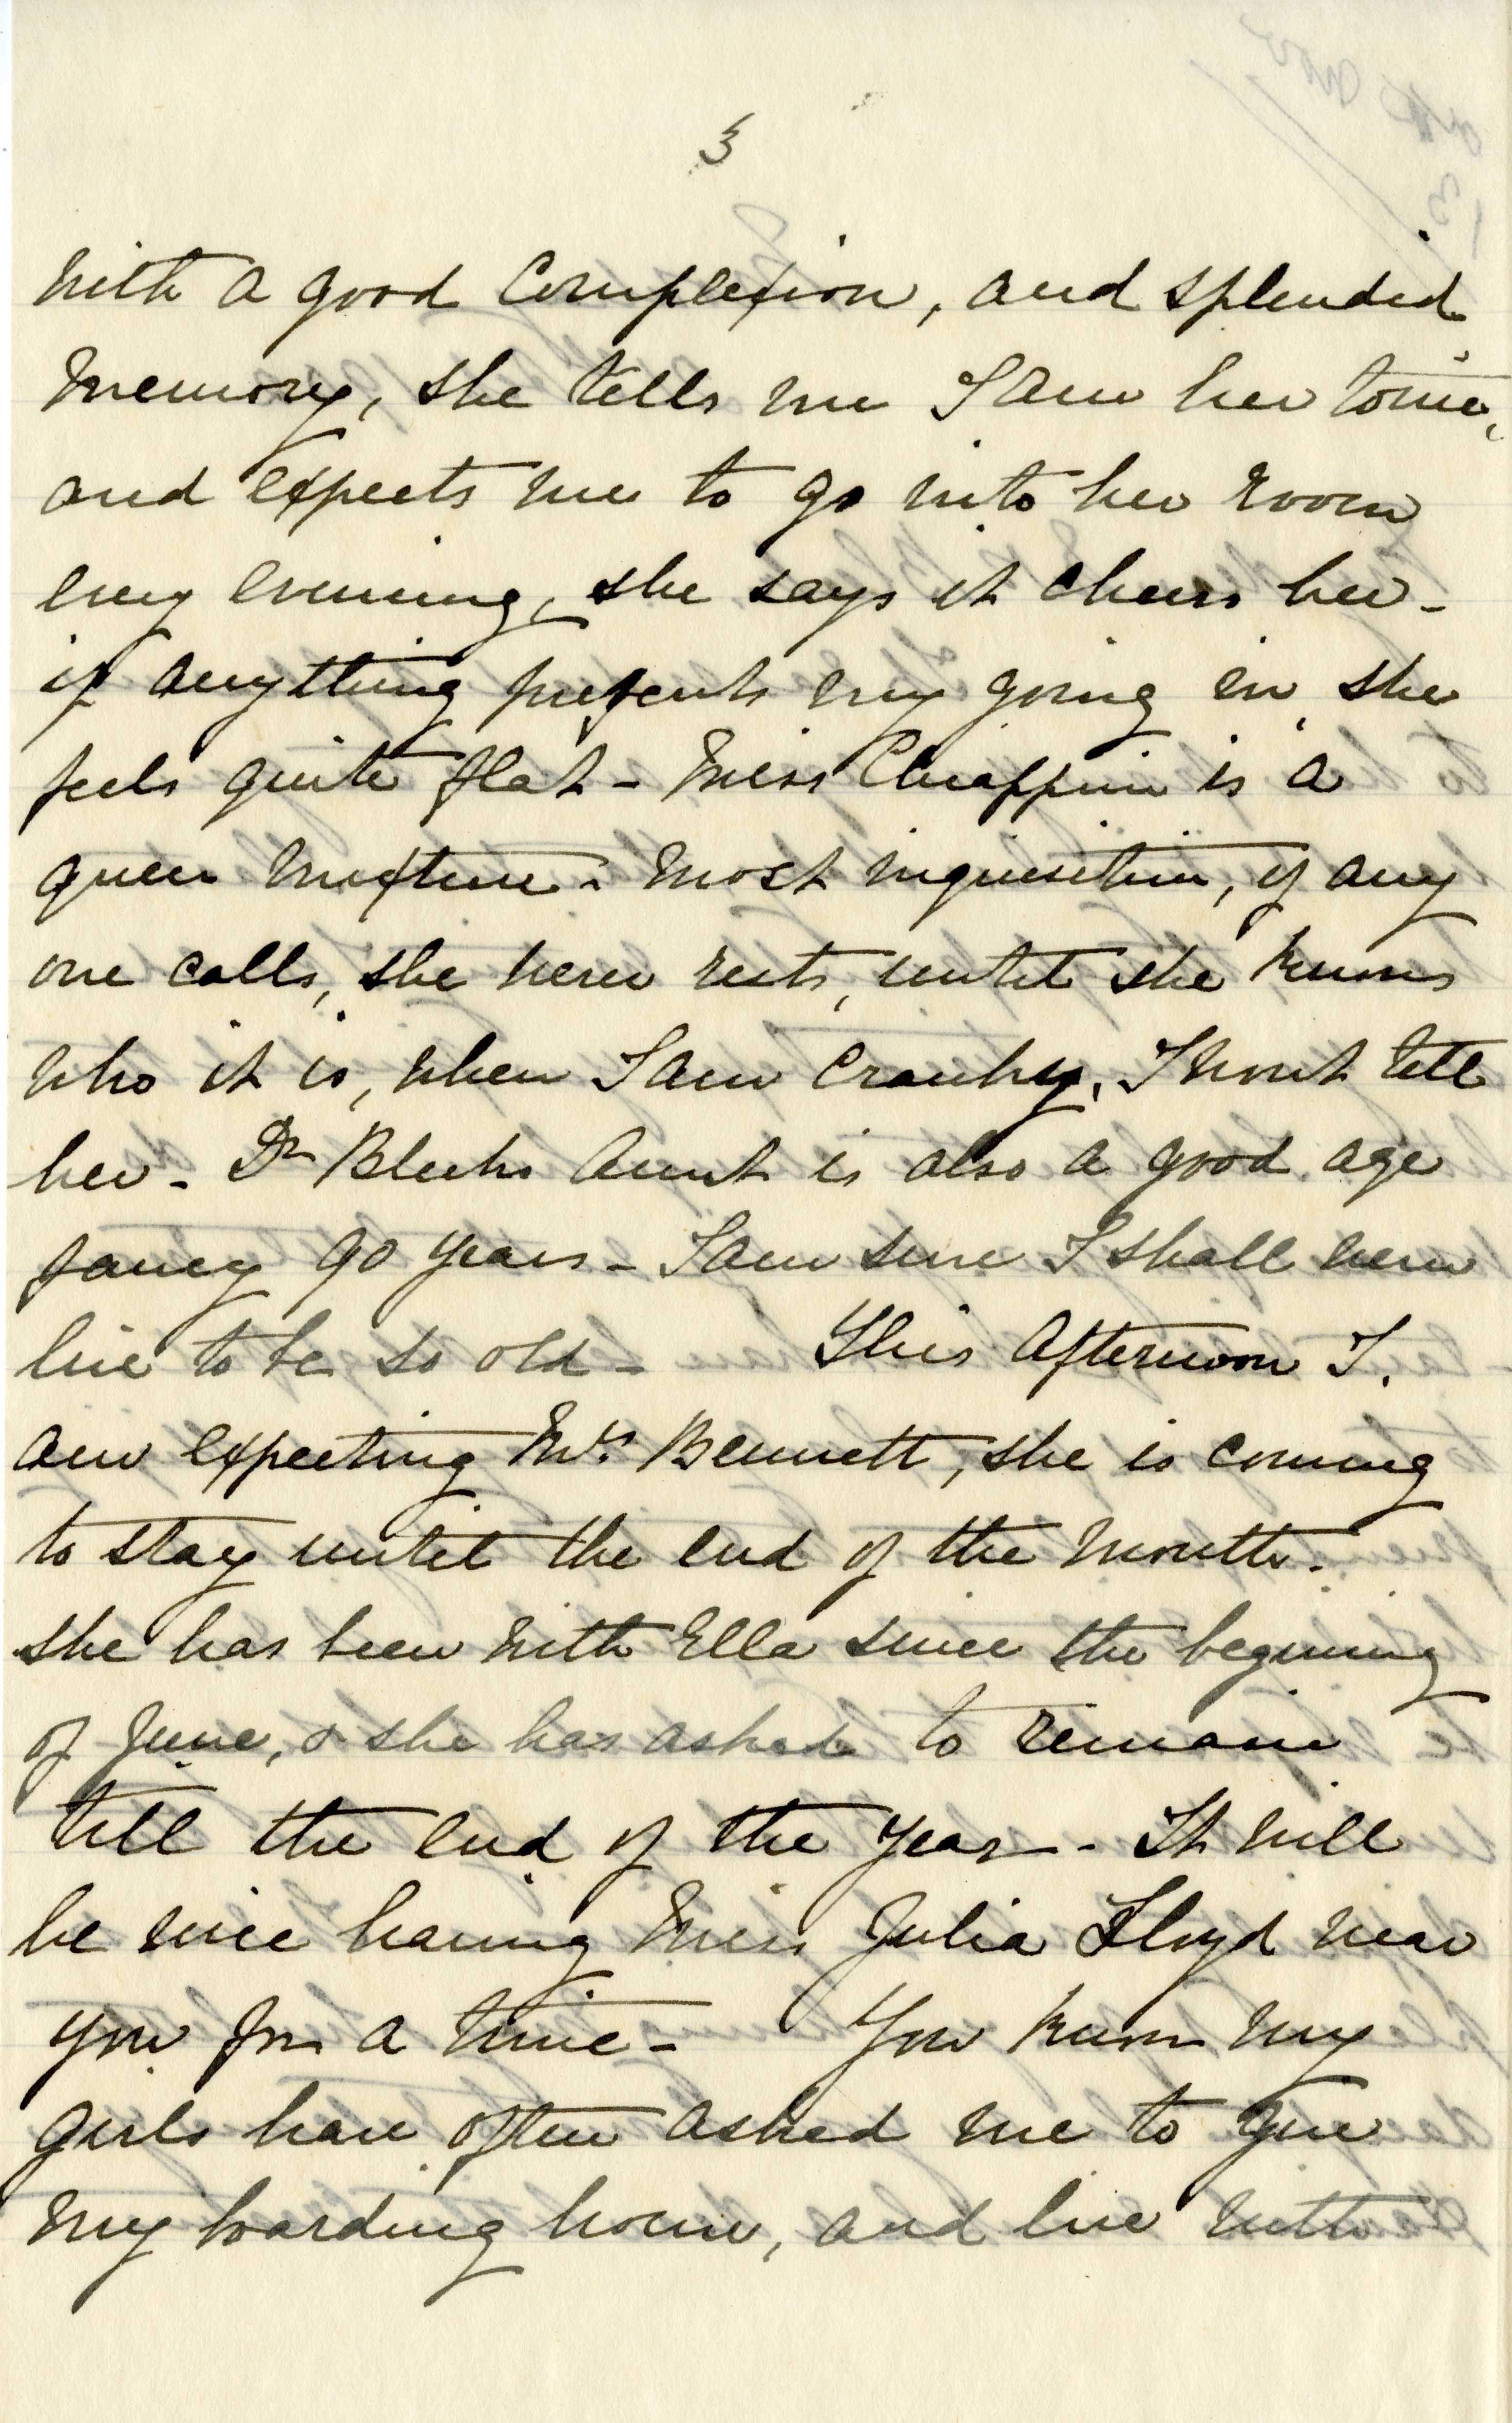 3
with a good Complexion, and splendid
memory, she tells me I am her tonic,
and expects me to go into her room
every evening, she says it cheers her -
if anything prevents my going in, she
feels quite flat - Miss Chiappini is a
queer mixture - most inquisitive, if any
one calls, she never rests, until she knows
who it is, when I am cranky, I wont tell
her - Dr Bleeks Aunt is also a good age
fancy 90 years - I am sure I shall never
live to be so old - This Afternoon I.
am expecting Mrs. Bennett, she is coming
to stay until the end of the month.
she has been with Ella since the begining
of June, & she has asked to remain
till the end of the year - It will
be nice having Miss Julia Lloyd near
you for a time - You know my
girls have often asked me to give
my boarding house, and live with